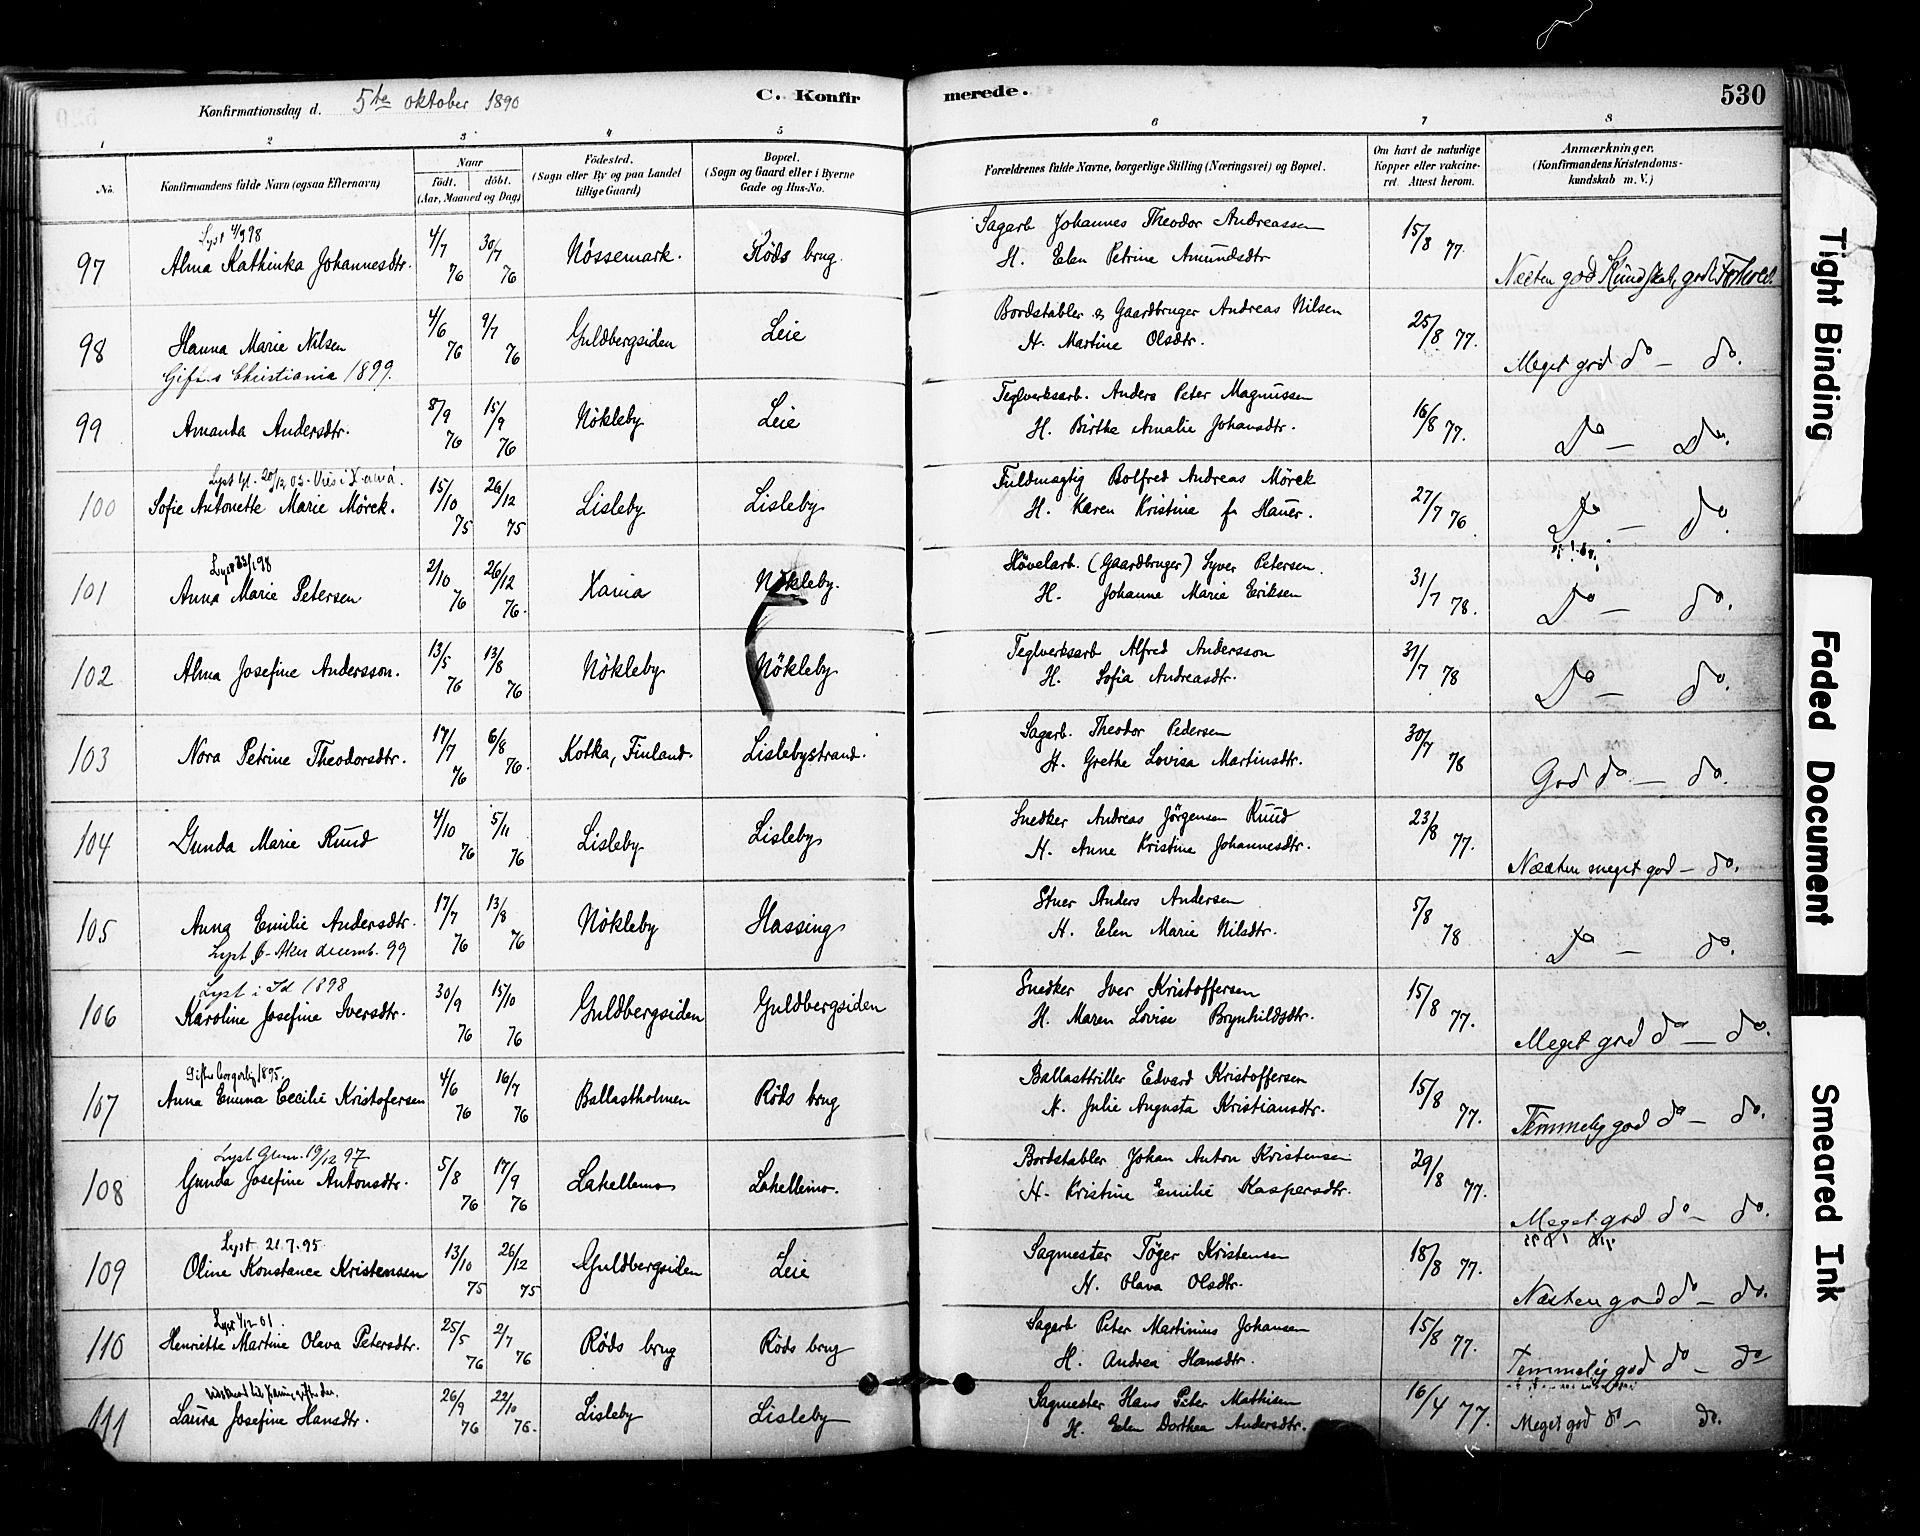 Konfirmationsdag d. 5te oktober 1890
C. Konfirmerede.
530
1 2 3 4 5 6 7 8
No.
Konfirmandens fulde Navn (ogsaa Efternavn)
Naar
födt. döbt.
(Aar, Maaned og Dag)
Födested.
(Sogn eller By og paa Landet
tillige Gaard)
Bopæl.
(Sogn og Gaard eller i Byerne
Gade og Hus-No.
Forældrenes fulde Navne, borgerlige Stilling (Næringsvei) og Bopæl.
Om havt de naturlige
Kopper eller vakcine-
ret. Attest herom.
Anmærkninger.
(Konfirmandens Kristendoms-
kundskab m. V.)
Lyst 4/9 98
97 Alma Kathinka Johannesdtr. 4/7 76 30/7 76 Nössemark. Röds brug. Sagarb Johannes Theodor Andreassen
H. Elen Petrine Amundsdtr 15/8 77. Næsten god Kundskab, godt Forhold.
98 Hanna Marie Nilsen 4/6 76 9/7 76 Guldbergsiden Leie Bordstabler & Gaardbruger Andreas Nilsen
H. Martine Olsdtr. 25/8 77. Meget god do — do.
Giftes Christiania 1899.
99 Amanda Andersdtr. 8/9 76 15/9 76 Nökleby Leie Teglverksarb. Anders Peter Magnussen
H. Birthe Amalie Johansdtr. 16/8 77. Do — Do.
Lyst Gl. 20/12 03. Vies i Xania.
100 Sofie Antonette Marie Mörck. 15/10 75 26/12 75 Lisleby Lisleby Fuldmagtig Bolfred Andreas Mörck
H. Karen Kristine f. Hauer. 27/7 76 Do — do.
Lyst 23/1 98
101 Anna Marie Petersen 2/10 76 26/12 76. Xania Nökleby. Hövelarb. (Gaardbruger) Syver Petersen.
H. Johanne Marie Eriksen 31/7 78. Do — do.
102 Alma Josefine Andersson. 13/5 76 13/8 76 Nökleby Nökleby Teglverksarb Alfred Andersson
H. Sofia Andreasdtr. 31/7 78 Do — do.
103 Nora Petrine Theodorsdtr. 17/7 76 6/8 76. Kotka, Finland. Lislebystrand. Sagarb. Theodor Pedersen
H. Grethe Lovisa Martinsdtr. 30/7 78 God do. — do.
104 Gunda Marie Ruud 4/10 76 5/11 76 Lisleby Lisleby Snedker Andreas Jörgensen Ruud
H. Anne Kristine Johannesdtr. 23/8 77. Næsten meget god — do.
105 Anna Emilie Andersdtr. 17/7 76 13/8 76 Nökleby Hassing Stuer Anders Andersen
H. Elen Marie Nilsdtr. 5/8 78 Do — do.
Aker decemb. 99
Lyst i Id 1898
106 Karoline Josefine Iversdtr. 30/9 76 15/10 76 Guldbergsiden Guldbergsiden Snedker Iver Kristoffersen
H. Maren Lovise Brynhildsdtr. 15/8 77. Meget god do — do.
Gift borgerlig 1895.
107 Anna Emma Cecilie Kristofersen 4/6 76 16/7 76 Ballastholmen Röds brug Ballasttriller Edvard Kristoffersen
H. Julie Augusta Kristiansdtr. 15/8 77. Temmelig god do — do.
Lyst Glem. 19/12 97
108 Gunda Josefine Antonsdtr. 5/8 76 17/9 76 Lahellemo Lahellemo. Bordstabler Johan Anton Kristensen
H. Kristine Emilie Kaspersdtr. 29/8 77. Meget god do — do.
Lyst 21.7.95
109 Oline Konstance Kristensen 13/10 75 26/12 75 Guldbergsiden Leie Sagmester Töger Kristensen
H. Olava Olsdtr. 18/8 77. Næsten god do — do.
Lyst 1/12 01.
110 Henriette Martine Olava Petersdtr. 25/5 76 2/7 76 Röds brug Röds brug Sagarb Peter Martinius Johansen
H. Andrea Hansdtr. 15/8 77. Temmelig god do — do
111 Laura Josefine Hansdtr. 26/9 76 22/10 76. Lisleby Lisleby Sagmester Hans Peter Mathisen
H. Elen Dorthea Andersdtr. 16/4 77. Meget god do — do.
Tight Binding
Faded Document
Smeared Ink